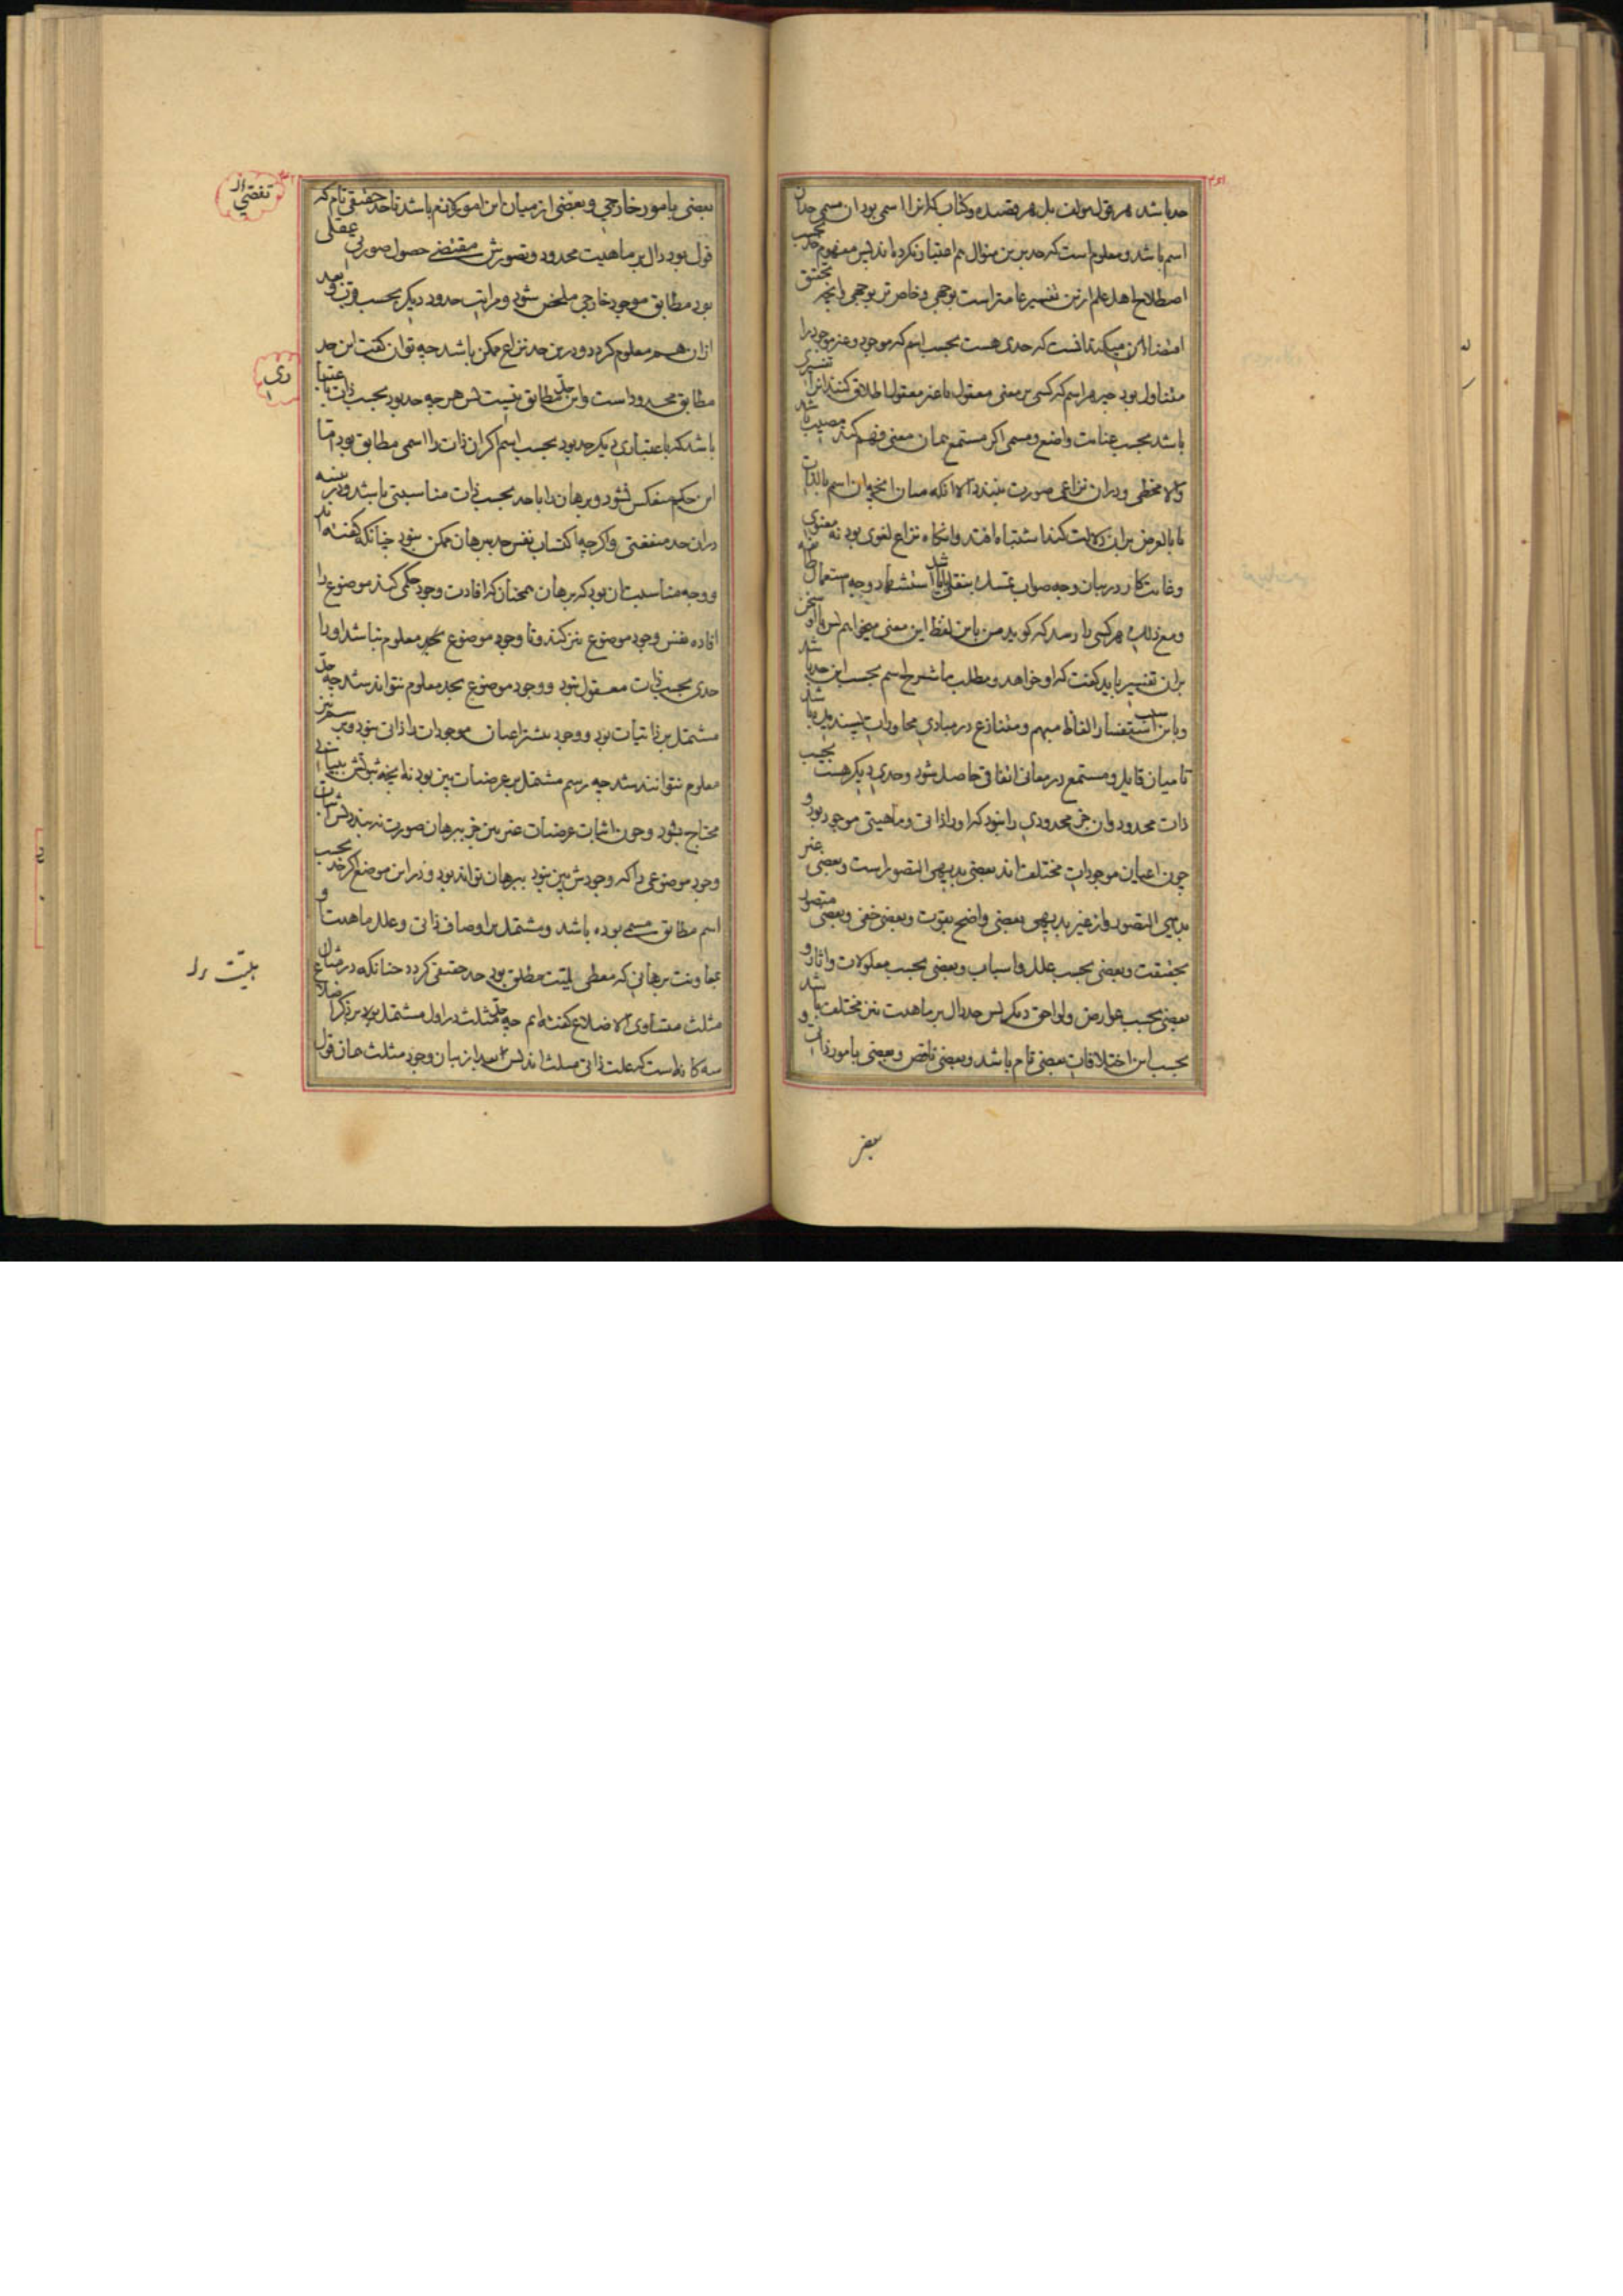 حد باشد هر قول مولف بل هر قصیده و کتاب که آنرا اسمی بود آن مسمی حد آن
اسم باشد و معلوم است که حد برین منوال هم اعتبار نکرده‌اند پس مفهوم حد بحسب
اصطلاح اهل علم ازین تفسیر عامتر است بوجهی و خاص‌تر بوجهی و آنچه تحقیق
اقتضاء آن میکند آنست که حدی هست بحسب اسم که موجود و غیر موجود را
متناول بود چه هر اسم که کسی بر معنی معقول یا غیر معقول اطلاق کند آنرا تفسیری
باشد بحسب عنایت واضع و مسمی اگر مستمع همان معنی فهم کند مصیب باشد
والا مخطی و در آن نزاعی صورت نبندد الا آنکه میان آنچه آن اسم بالذات
یا بالعرض بر آن دلالت کند اشتباه افتد و آنگاه نزاع لغوی بود نه معنوی
و غایت کار در بیان وجه صواب تمسک بنقلی باشد یا استشهاد وجه استعمال
و مع ذلک هر کسی را رسد که گوید من باین لفظ این معنی میخواهم پس با او سخن
بر آن تفسیر باید گفت که او خواهد و مطلب ما شرح اسم بحسب این حد باشد
و باین سبب استفسار الفاظ مبهم و متنازع در مبادی محاورات پسندیده باشد
تا میان قایل و مستمع در معانی اتفاقی حاصل شود و حدی دیگر هست بحسب
ذات محدود و آن جز محدودی را نبود که او را ذاتی و ماهیتی موجود بود و
چون اعیان موجودات مختلف‌اند بعضی بدیهی التصور است و بعضی غیر
بدیهی التصور و از غیر بدیهی بعضی واضح بقوت و بعضی خفی و بعضی متصور
بحقیقت و بعضی بحسب علل و اسباب و بعضی بحسب معلولات و آثار و
بعضی بحسب عوارض و لواحق دیگر پس حد دال بر ماهیت نیز مختلف باشد
بحسب این اختلافات بعضی تام باشد و بعضی ناقص و بعضی بامور ذاتی و
بعضی
بعضی بامور خارجی و بعضی از میان این امور لازم باشد تا حد حقیقی تام که
قول بود دال بر ماهیت محدود و تصورش مقتضی حصول صورتی عقلی
بود مطابق موجود خارجی ملخص شود و مراتب حدود دیگر بحسب قرب و بعد
از آن هم معلوم گردد و درین حد نزاع ممکن باشد چه توان گفت این حد
مطابق محدود است و این حد مطابق نیست پس هر چه حد بود بحسب ذات باعتبار
باشد که باعتباری دیگر حد بود بحسب اسم اگر آن ذات را اسمی مطابق بود اما
این حکم منعکس نشود و برهان را با حد بحسب ذات مناسبتی باشد و در نسبه
در آن حد منفعتی و اگر چه اکتساب نفس حد ببرهان ممکن نبود چنانکه گفته‌اند
و وجه مناسبت آن بود که برهان همچنان که افادت وجود حکمی کند موضوع را
افاده نفس وجود موضوع نیز کند و تا وجود موضوع بحد معلوم نباشد او را
حدی بحسب ذات معقول نبود و وجود موضوع بحد معلوم نتواند شد چه حد
مشتمل بر ذاتیات بود و وجود بیشتر اعیان موجودات را ذاتی نبود و برسم نیز
معلوم نتوانند شد چه رسم مشتمل بر عرضیات بین بود نه آنچه ثبوتش ببیانی
محتاج بود و چون اثبات عرضیات غیر بین جز ببرهان صورت نبندد پس اثبات
وجود موضوعی را که وجودش بین نبود ببرهان تواند بود و در این موضع اگر حد بحسب
اسم مطابق مسمی بوده باشد و مشتمل بر اوصاف ذاتی و علل ماهیت و
بمعاونت برهانی که معطی لمیت مطلق بود حد حقیقی گردد چنانکه در مثال
مثلث متساوی الاضلاع گفته‌ایم چه حد مثلث در اول مشتمل بود بر ذکر اضلاع
سه گانه است که علت ذاتی مثلث‌اند پس بعد از بیان وجود مثلث همان قول